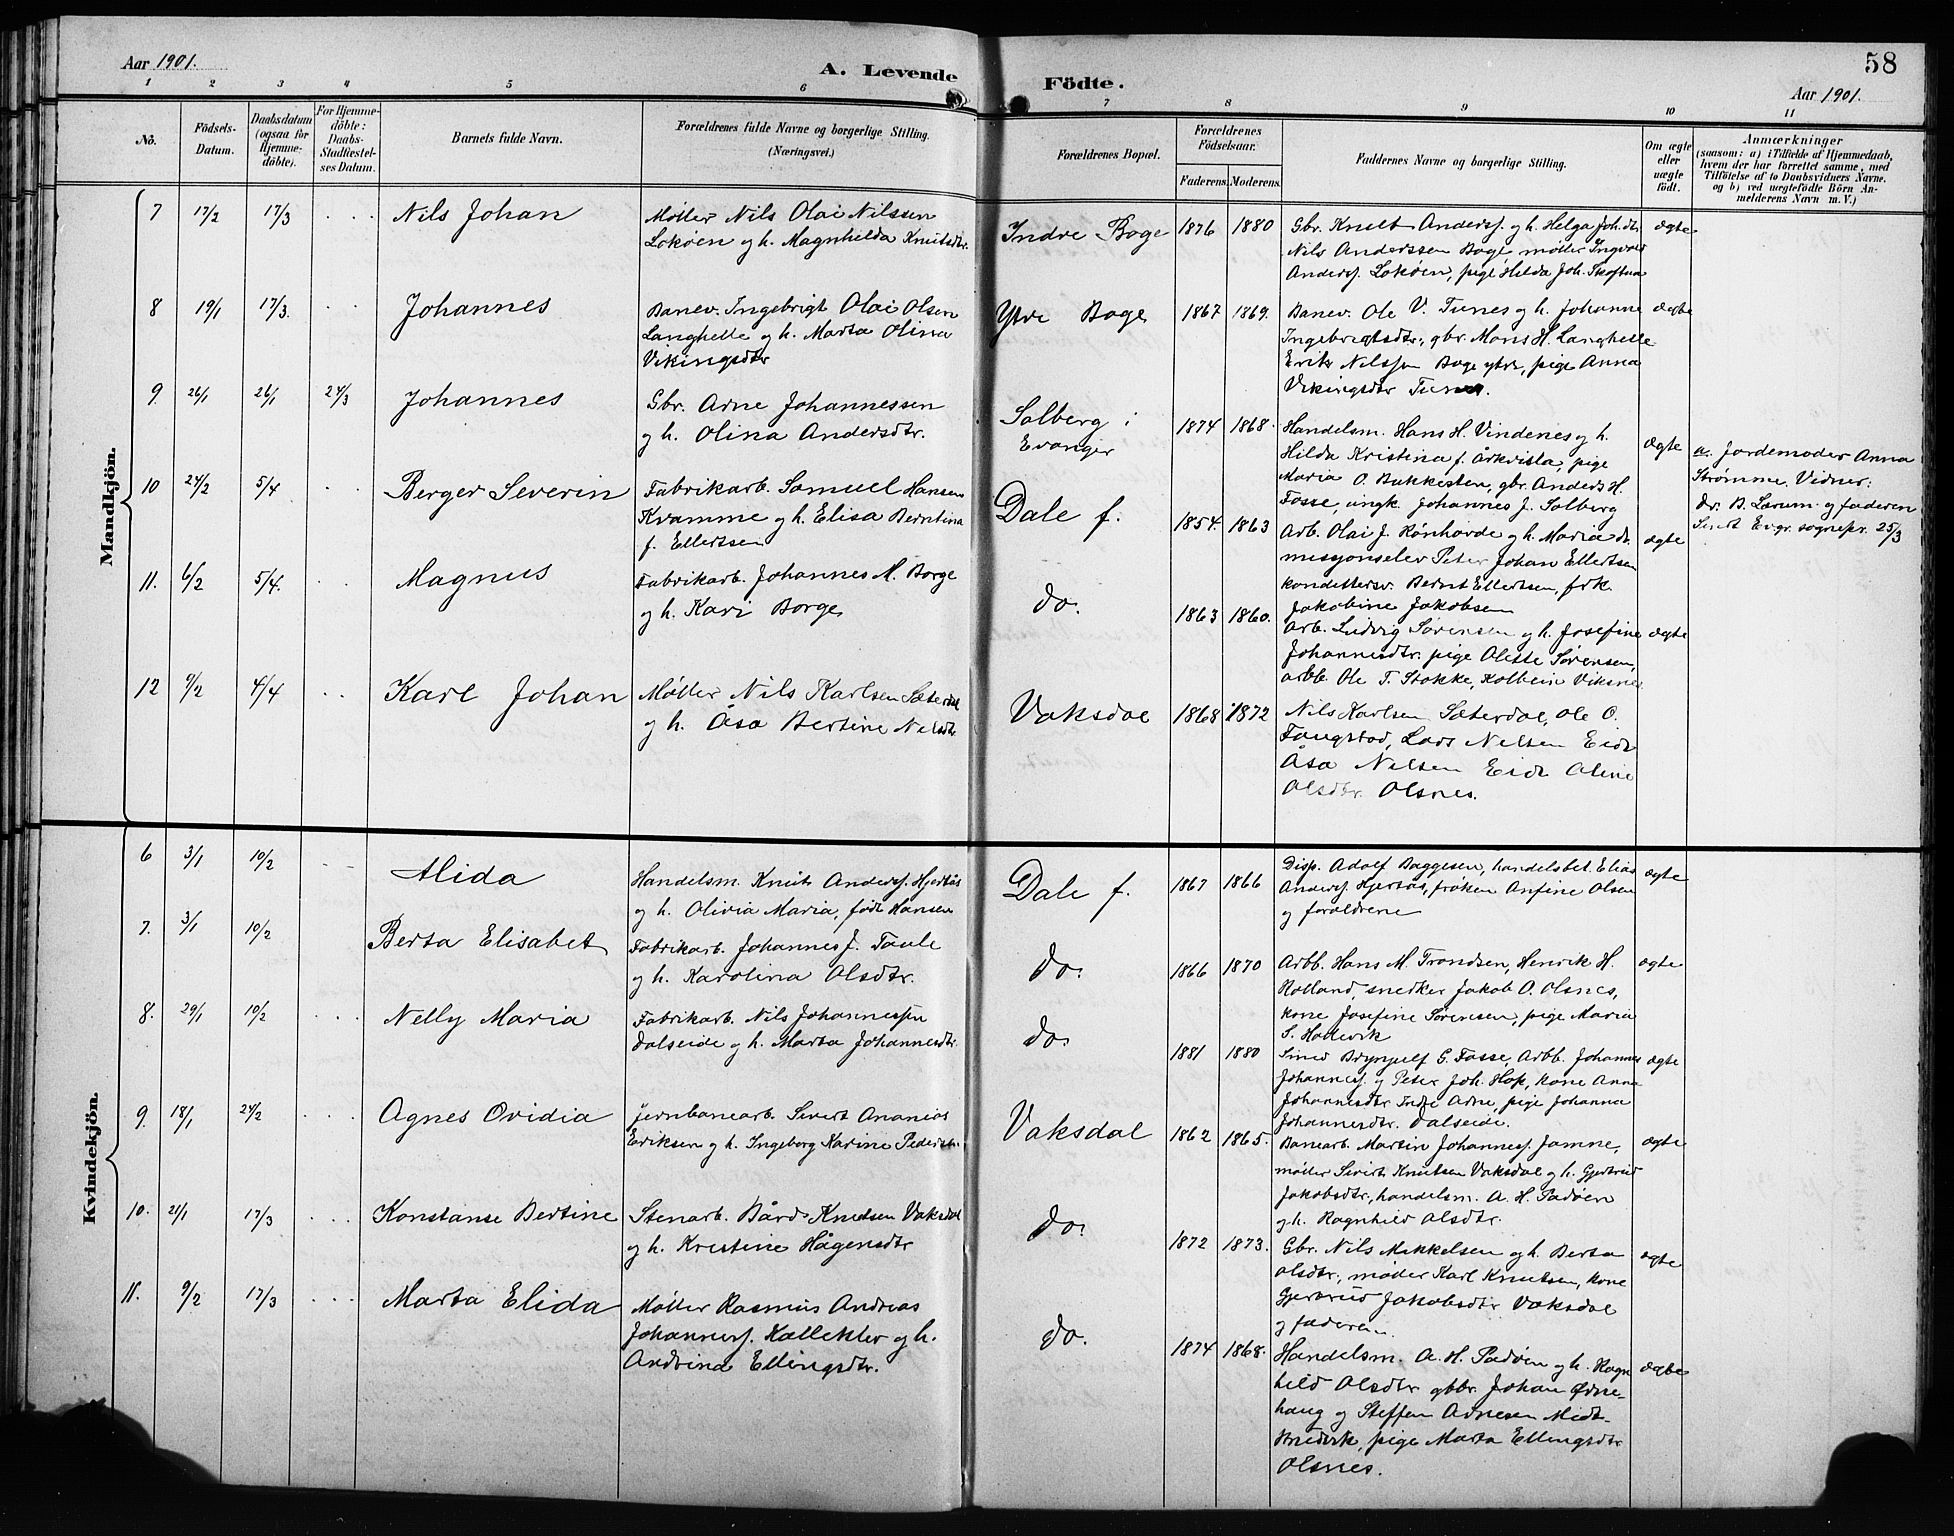 Aar 1901.
A. Levende
Födte.
58
Aar 1901.
1 2 3 4 5 6 7 8 9 10 11
No.
Födsels-
Datum.
Daabsdatum
(ogsaa for
Hjemme-
döbte).
For Hjemme-
döbte:
Daabs-
Stadfæstel-
ses Datum.
Barnets fulde Navn.
Forældrenes fulde Navne og borgerlige Stilling.
(Næringsvei.)
Forældrenes Bopæl.
Forældrenes
Födselsaar.
Faderens. Moderens.
Faddernes Navne og borgerlige Stilling.
Om ægte
eller
uægte
födt.
Anmærkninger
(saasom: a) i Tilfælde af Hjemmedaab,
hvem der har forrettet samme, med
Tilföielse af to Daabsvidners Navne.
og b) ved uægtefödte Börn An-
melderens Navn m. V.)
Mandkjön.
7 17/2 17/3 Nils Johan
Møller Nils Olai Nilssen
Lokøen og h. Magnhilda Knutsdtr.
Indre Boge 1876 1880
Gbr. Knut Anderss. og h. Helga Joh.dtr.
Nils Anderssen Boge, møller Ingvald
Anderss. Lokøen, pige Hilda Joh. Skoftua
ægte
8 19/1 17/3. Johannes
Banev. Ingebrigt Olai Olsen
Langhelle og h. Marta Olina
Vikingsdtr
Ytre Boge 1867 1869.
Banev. Ole V. Tunes og h. Johanne
Ingebrigtsdtr., gbr. Mons H. Langhelle
Erik Nilssen Boge ytre, pige Anna
Vikingsdtr Tunes.
ægte
9. 26/1 26/1 24/3 Johannes
Gbr. Arne Johannessen
og h. Olina Andersdtr.
Solberg i
Evanger
1874 1868.
Handelsm. Hans H. Vindenes og h.
Hilda Kristina f. Årkvisla, pige
Maria O. Bukkesten, gbr. Anders H.
Fosse, ungk. Johannes J. Solberg
ægte
a. Jordemoder Anna
Strømme. Vidner:
dr. B. Lærum og faderen
Sendt Evgr. sognepr. 25/3
10 24/2 5/4 Berger Severin
Fabrikarb. Samuel Hansen
Kvamme og h. Elisa Berntina
f. Ellertsen
Dale f. 1854. 1863
Arb. Olai J. Rønhovde og h. Maria
misjonselev Peter Johan Ellertsen
Bernt Ellertsen, frk.
Jakobine Jakobsen
ægte
11. 6/2 5/4. Magnus
Fabrikarb. Johannes M. Borge
og h. Kari Borge
do. 1863 1860.
Arb. Ludvig Sørensen og h. Josefine
Johannesdtr. pige Oleste Sørensen,
arbb. Ole T. Stokke, Kolbein Viksnes
ægte
12 9/2 4/4 Karl Johan
Møller Nils Karlsen Sæterdal
og h. Åsa Bertine Nilsdtr
Vaksdal 1868 1872
Nils Karlsen Sæterdal, Ole O.
Fangstad, Lars Nilsen Eide
Åsa Nilsen Eide Oline
Olsdtr. Olsnes.
Kvindekjön.
6 3/1 10/2 Alida
Handelsm. Knut Anderss. Hjertås
og h. Olivia Maria, født Hansen
Dale f. 1867 1866
Disp. Adolf Baggesen, handelsbet. Elias
Anderss. Hjertås, frøken Anfine Olsen
og forældrene
ægte
7. 3/1 10/2 Berta Elisabet
Fabrikarb. Johannes J. Taule
og h. Karolina Olsdtr.
do. 1866 1870
Arbb. Hans M. Trondsen, Henrik H.
Holland, snedker Jakob O. Olsnes,
kone Josefine Sørensen, pige Maria
S. Hallevik
ægte
8. 29/1 10/2 Nelly Maria
Fabrikarb. Nils Johannessen
Dalseide og h. Marta Johannesdtr.
do. 1881 1880
Smed Brynjulf G. Fosse, Arbb. Johannes
Johanness. og Peter Joh. Hop, kone Anna
Johannesdtr Indre Arne, pige Johanna
Johannesdtr. Dalseide.
ægte
9. 18/1 24/2 Agnes Ovidia
Jernbanearb. Sivert Ananias
Eriksen og h. Ingeborg Karine Pedersdtr.
Vaksdal 1862 1865.
Banearb. Martin Johanness. Jamne,
møller Sivert Knutsen Vaksdal og h. Gjertrud
Jakobsdtr., handelsm. A. H. Padøen
og h. Ragnhild Olsdtr.
ægte
10. 21/1 17/3 Konstanse Bertine
Stenarb. Bård Knutsen Vaksdal
og h. Kristine Hågensdtr
do. 1872 1873.
Gbr. Nils Mikkelsen og h. Berta
Olsdtr., møller Karl Knutsen, kone
Gjertrud Jakobsdtr Vaksdal
og faderen.
ægte
11. 9/2 17/3 Marta Elida
Møller Rasmus Andreas
Johanness. Kalleklev og h.
Andrina Ellingsdtr.
do. 1874 1868.
Handelsm. A. H. Padøen og h. Ragn
hild Olsdtr gbbr. Johan Ødne-
haug og Steffen Arnesen Midt-
Bruvik, pige Marta Ellingsdtr
Olsnes.
ægte